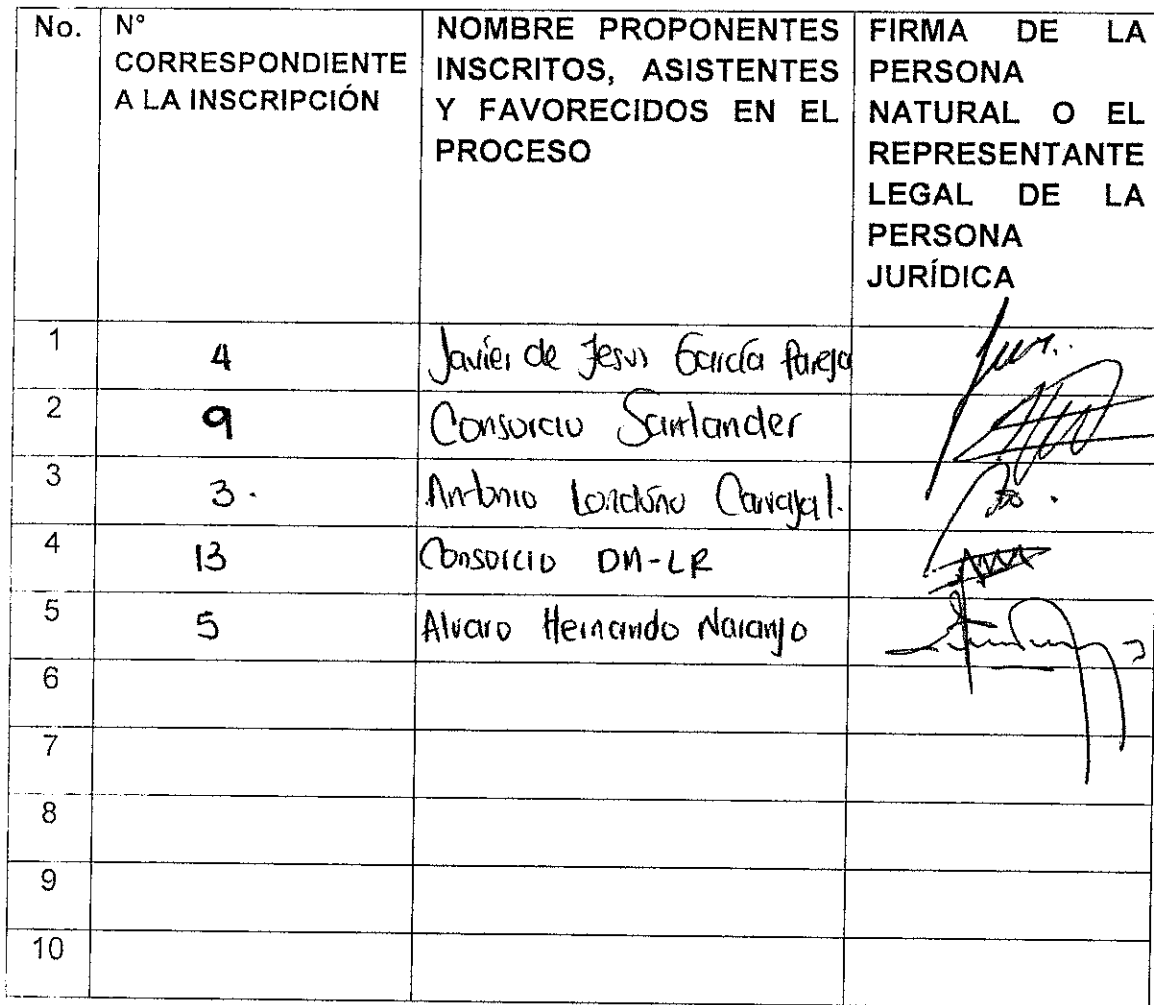 No.
N°
CORRESPONDIENTE
A LA INSCRIPCIÓN
NOMBRE PROPONENTES
INSCRITOS, ASISTENTES
Y FAVORECIDOS EN EL
PROCESO
FIRMA DE LA
PERSONA
NATURAL O EL
REPRESENTANTE
LEGAL DE LA
PERSONA
JURÍDICA
1 4 Javier de Jesus García Pareja
2 9 Consorcio Santander
3 3. Antonio Londoño Carvajal.
4 13 Consorcio DM-LR
5 5 Alvaro Hernando Naranjo
6
7
8
9
10